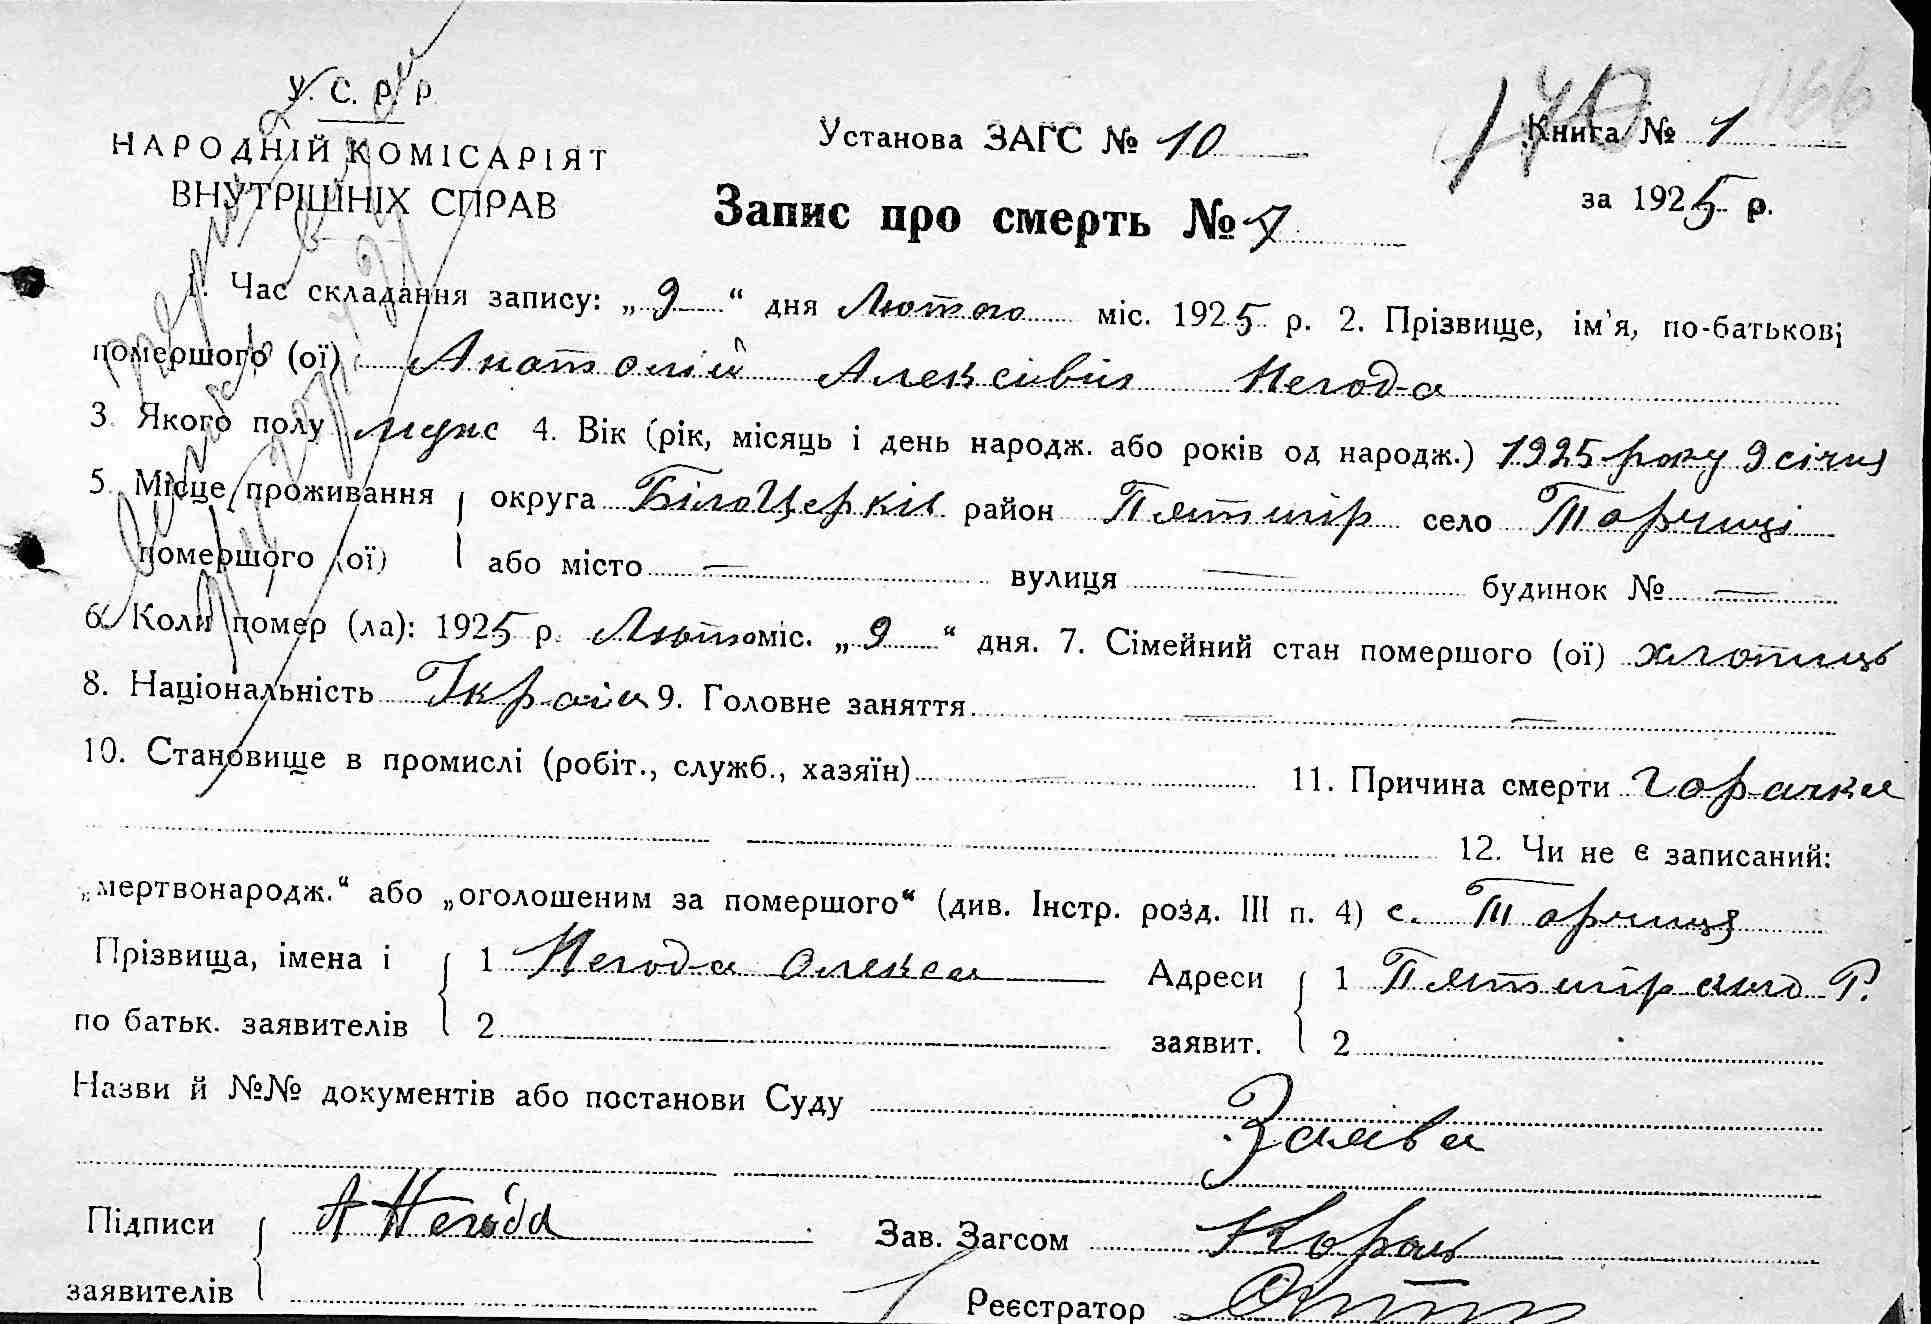 У. С. Р. Р.
НАРОДНІЙ КОМІСАРІЯТ
ВНУТРІШНІХ СПРАВ
Установа ЗАГС № 10
170
166
Книга № 1
за 1925 р.
Запис про смерть № 7
1. Час складання запису: „9“ дня Лютого міс. 1925 р. 2. Прізвище, ім'я, по-батькові
помершого (ої) Анатолій Алексівич Негода
3. Якого полу мужс 4. Вік (рік, місяць і день народж. або років од народж.) 1925 року 9 січня
5. Місце проживання округа БілоЦерків район Пятигір село Торчиці
помершого (ої) або місто — вулиця — будинок № —
6. Коли помер (ла): 1925 р. Лютого міс. „9“ дня. 7. Сімейний стан помершого (ої) хлопиць
8. Національність Україн 9. Головне заняття — —
10. Становище в промислі (робіт., служб., хазяїн) — 11. Причина смерти горачка
12. Чи не є записаний:
„мертвонародж.“ або „оголошеним за помершого“ (див. Інстр. розд. III п. 4) с. Торчиця
Прізвища, імена і 1 Негода Олекса Адреси 1 Пятигірського Р.
по батьк. заявителів 2 заявит. 2
Назви й №№ документів або постанови Суду
Заява
Підписи А Негода Зав. Загсом Король
заявителів Реєстратор